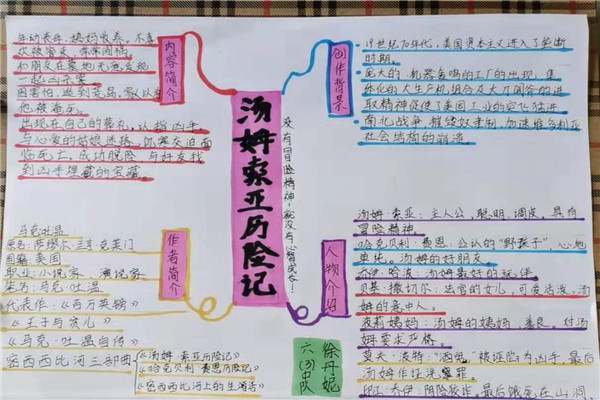 汤姆索亚历险记
没有冒险精神,就没有心智成长!
内容简介
年幼丧母,姨妈收养。不喜
欢被管束,常常闯祸
和朋友在墓地无意发现
一起凶杀案
因害怕,逃到荒岛,众人以为
他被淹死。
出现在自己的葬礼,认指凶手
与心爱的姑娘迷路,饥寒交迫面
临死亡,成功脱险 与好友找
到凶手埋藏的宝藏。
创作背景
19世纪70年代,美国资本主义进入了垄断
时期。
庞大的 机器轰鸣的工厂的出现,集
约化的大生产机组合及大刀阔斧的进
取精神促使了美国工业的突飞猛进
南北战争 摧毁奴隶制,加速维多利亚
社会结构的崩溃
作者简介
马克吐温
原名:萨缪尔·兰亨·克莱门
国籍:美国
职业:小说家、演说家
笔名:马克·吐温
代表作:《百万英镑》
《王子与贫儿》
《马克·吐温自传》
密西西比河三部曲
《汤姆·索亚历险记》
《哈克贝利·费恩历险记》
《密西西比河上的生活》
人物介绍
汤姆·索亚:主人公,聪明,调皮,具有
冒险精神
哈克贝利·费恩:公认的“野孩子”,心地
单纯,汤姆的好朋友
乔伊·哈波:汤姆最好的玩伴
贝基·撒切尔:法官的女儿,可爱活泼,汤
姆的意中人。
波莉姨妈:汤姆的姨妈,善良,对汤
姆要求严格。
莫夫·波特:“酒鬼”被诬陷为凶手,最后
汤姆作证洗冤罪。
印江·乔伊:阴险狡诈,最后饿死在山洞
徐丹妮
六(3)中队